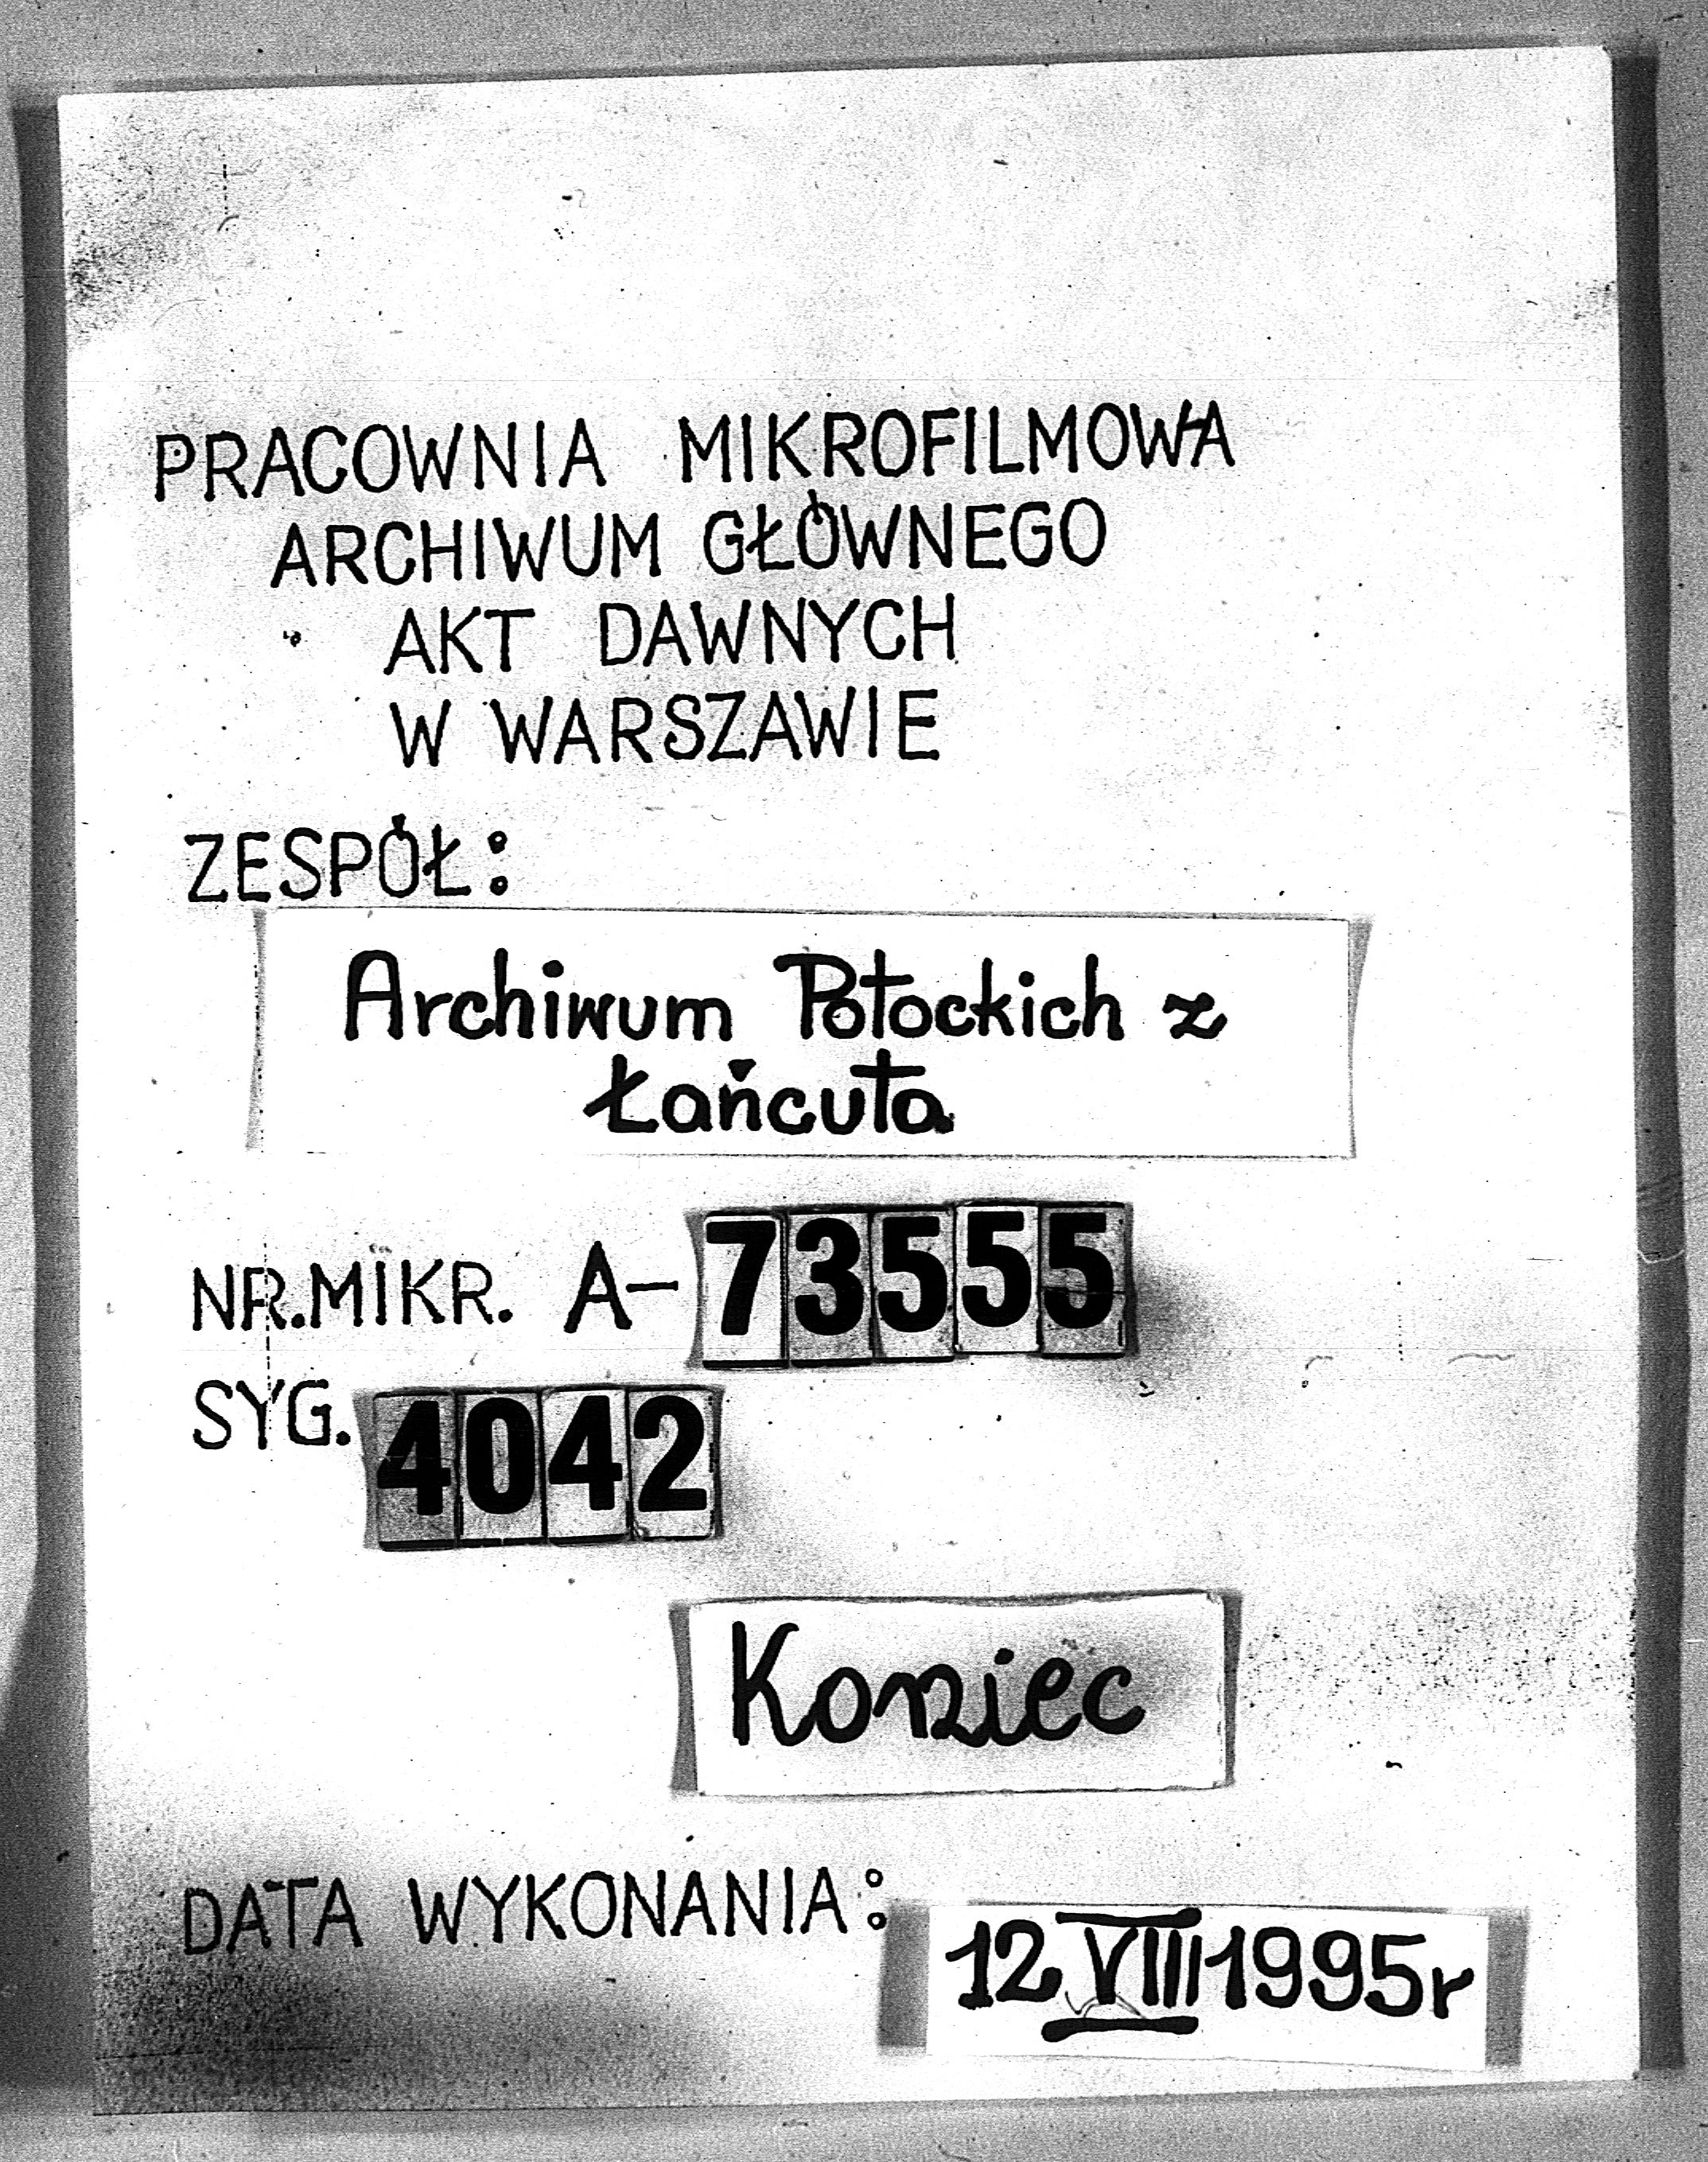 PRACOWNIA MIKROFILMOWA
ARCHIWUM GŁÓWNEGO
AKT DAWNYCH
W WARSZAWIE
ZESPÓŁ:
Archiwum Potockich z
Łańcuta
NR.MIKR. A-73555
SYG. 4042
Koniec
DATA WYKONANIA: 12 VIII 1995r